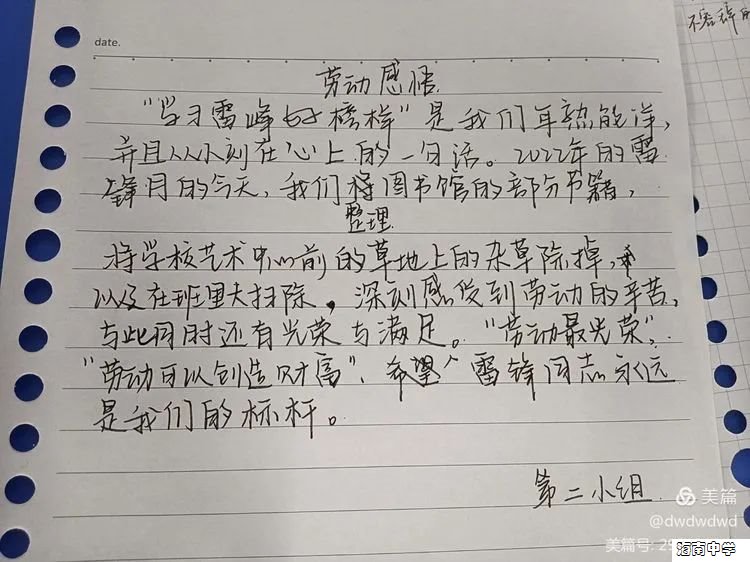 不容辞的
date.
劳动感悟
“学习雷峰好榜样”是我们耳熟能详,
并且从小刻在心上的一句话。2022年的雷
锋月的今天,我们将图书馆的部分书籍,
整理
将学校艺术中心前的草地上的杂草除掉,
以及在班里大扫除,深刻感受到劳动的辛苦,
与此同时还有光荣与满足。“劳动最光荣”,
“劳动可以创造财富”,希望 雷锋同志永远
是我们的标杆。
第二小组
美篇
@dwdwdwd
美篇号: 29
海南中学